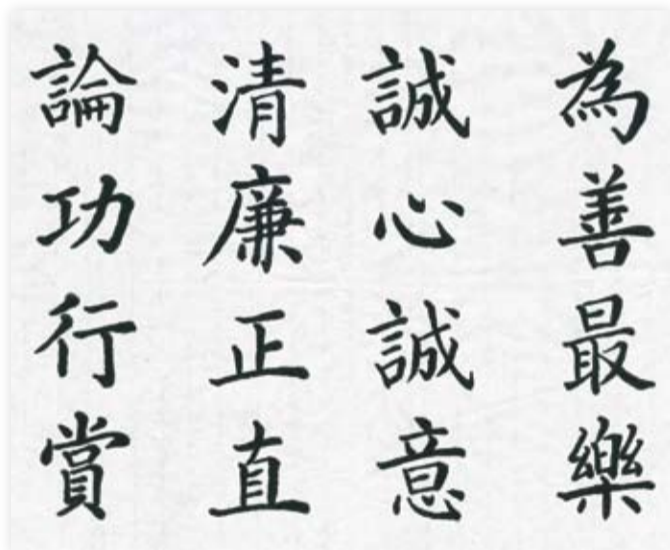 為善最樂
誠心誠意
清廉正直
論功行賞